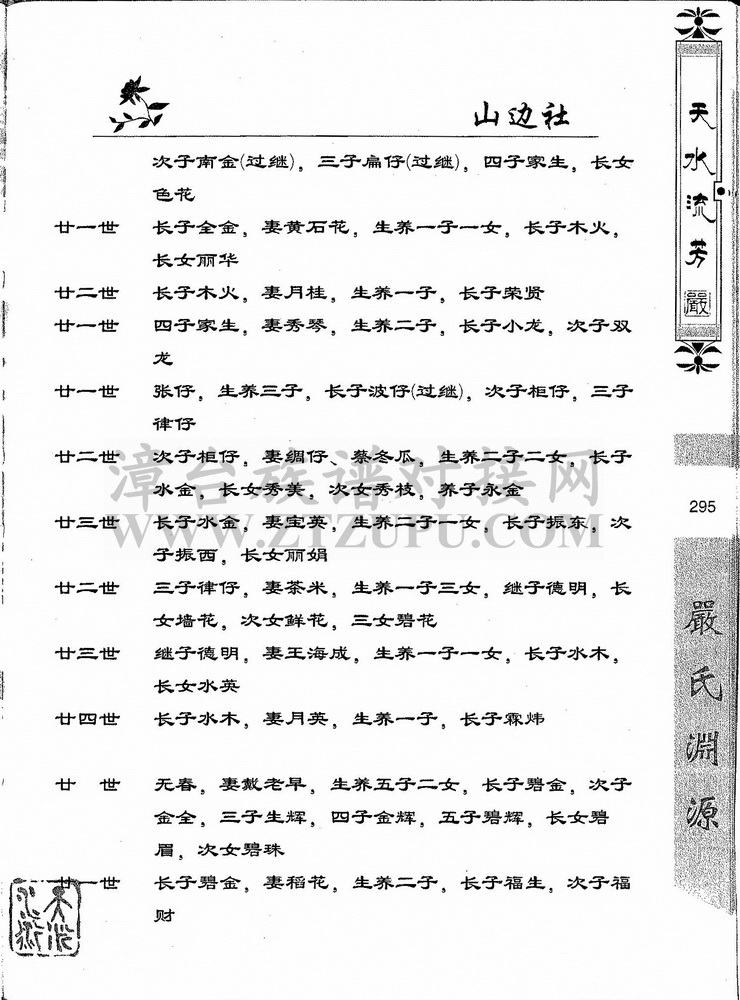 山边社
次子南金(过继)，三子扁仔(过继)，四子家生，长女
色花
廿一世 长子全金，妻黄石花，生养一子一女，长子木火，
长女丽华
廿二世 长子木火，妻月桂，生养一子，长子荣贤
廿一世 四子家生，妻秀琴，生养二子，长子小龙，次子双
龙
廿一世 张仔，生养三子，长子波仔(过继)，次子柜仔，三子
律仔
廿二世 次子柜仔，妻绸仔、蔡冬瓜，生养二子二女，长子
水金，长女秀美，次女秀枝，养子永金
廿三世 长子水金，妻宝英，生养二子一女，长子振东，次
子振西，长女丽娟
廿二世 三子律仔，妻茶米，生养一子三女，继子德明，长
女墙花，次女鲜花，三女碧花
廿三世 继子德明，妻王海成，生养一子一女，长子水木，
长女水英
廿四世 长子水木，妻月英，生养一子，长子霖炜
廿 世 无春，妻戴老早，生养五子二女，长子碧金，次子
金全，三子生辉，四子金辉，五子碧辉，长女碧
眉，次女碧珠
廿一世 长子碧金，妻稻花，生养二子，长子福生，次子福
财
天水流芳
嚴
295
嚴氏淵源
漳台族谱对接网
WWW.ZTZUPU.COM